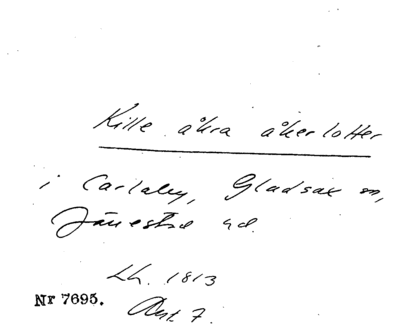 Kille åkra åkerlotter
i Carlaby, Gladsax sn,
Järrestad hd.
Lh. 1813
Akt 7.
Nr 7695.